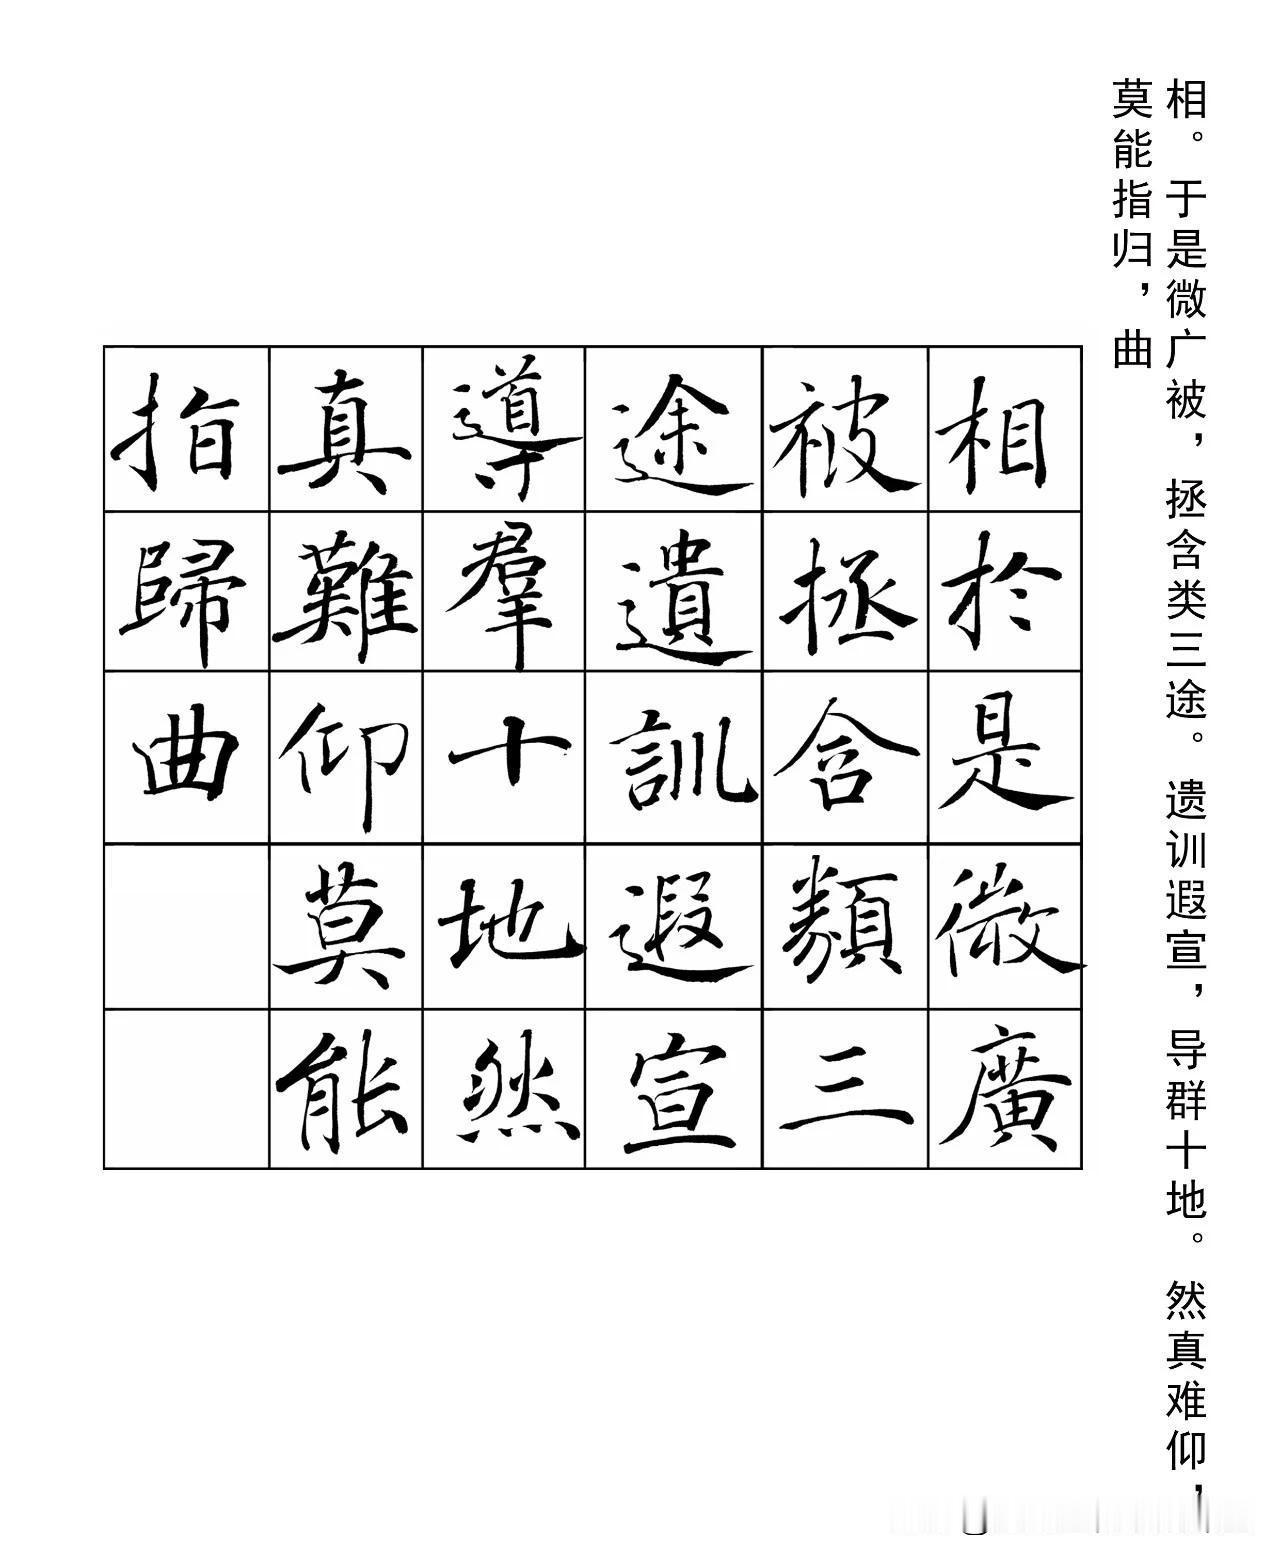 相。于是微广被，拯含类三途。遗训遐宣，导群十地。然真难仰，
莫能指归，曲
相於是微廣
被拯含類三
途遺訓遐宣
導羣十地然
真難仰莫能
指歸曲